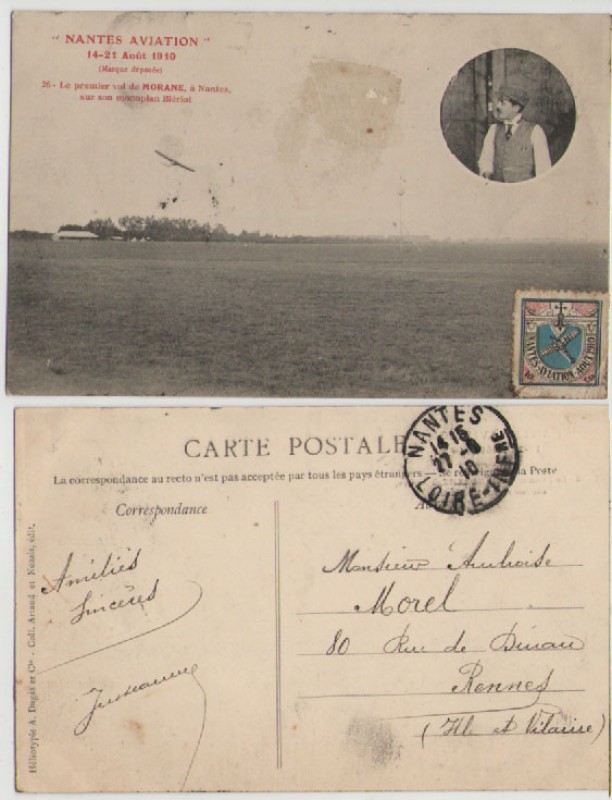 "NANTES AVIATION"
14-21 Août 1910
(Marque déposée)
26 - Le premier vol de MORANE, à Nantes,
sur son monoplan Blériot
NANTES-AVIATION-AOUT 1910
CARTE POSTALE
La correspondance au recto n'est pas acceptée par tous les pays étrangers — Se renseigner à la Poste
Correspondance
NANTES
14 15
22 - 8
10
LOIRE-INFRE
Amitiés
Sincères
Monsieur Ambroise
Morel
80 Rue de Dinan
Rennes
(Ille et Vilaine)
Héliotypie A. Dugas et Cie - Coll. Artaud et Nozais, édit.